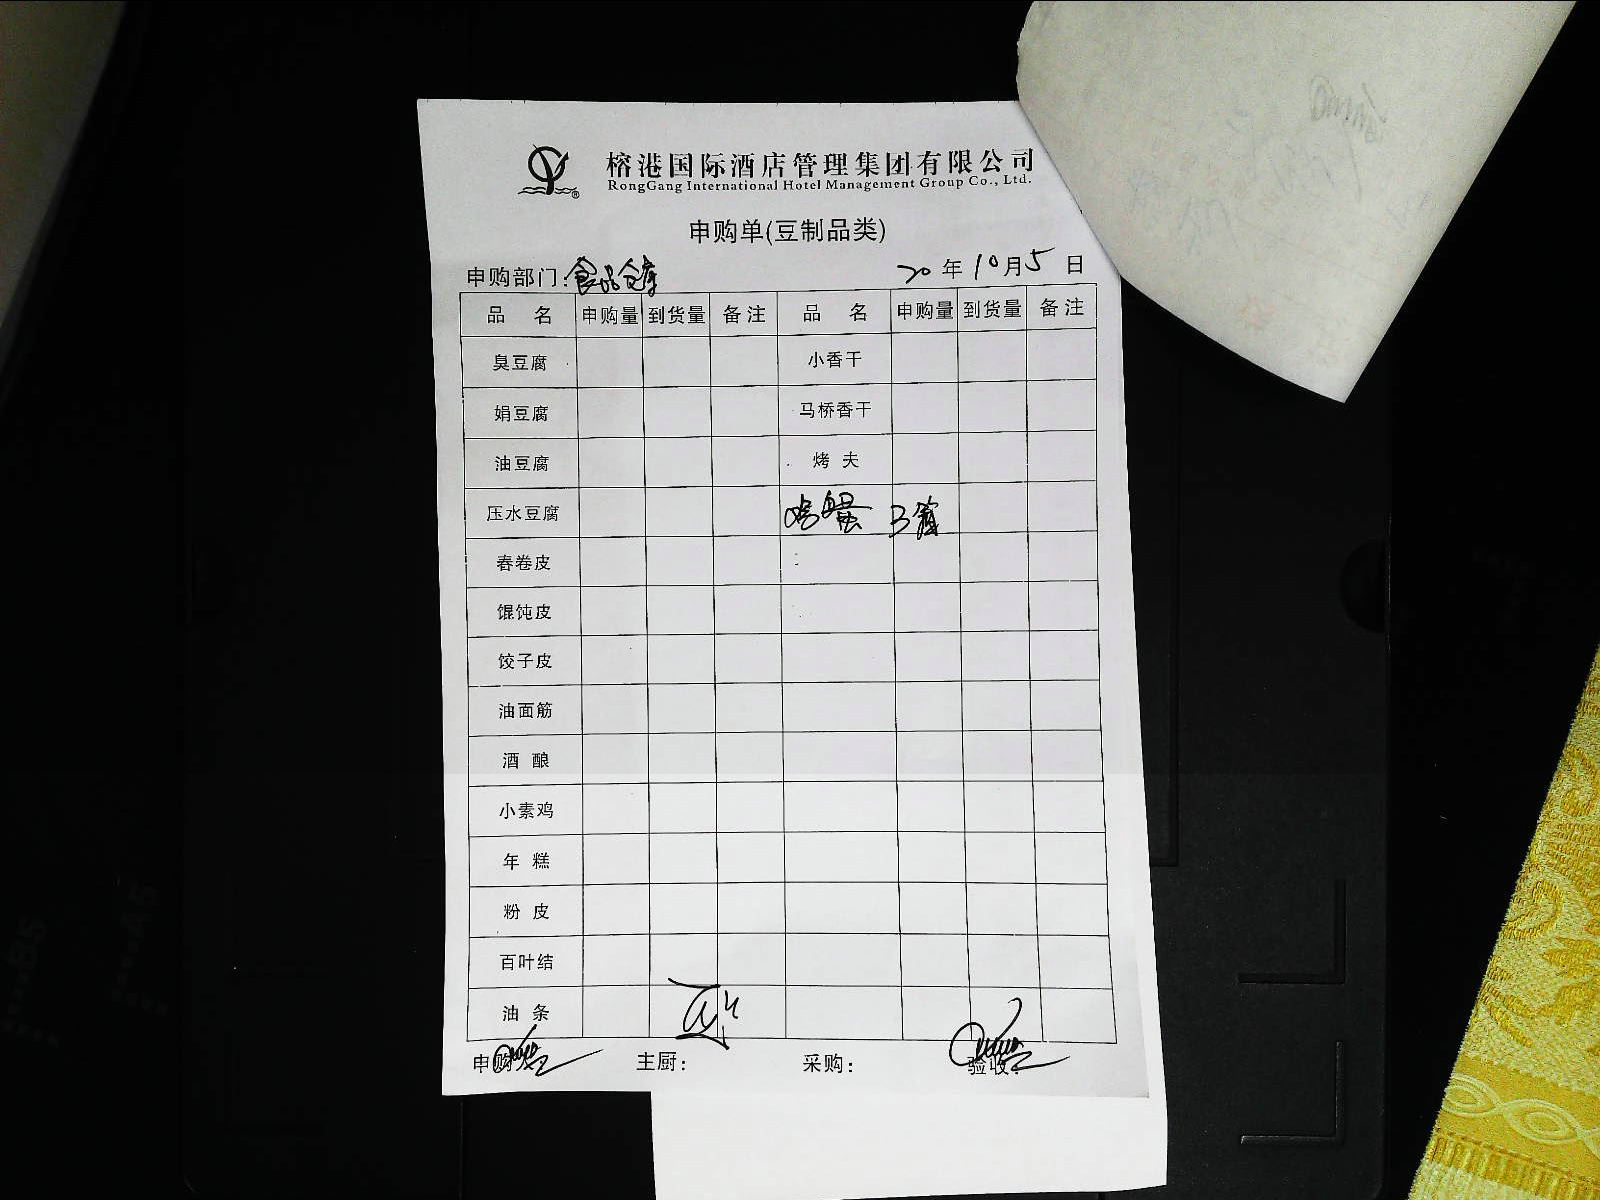 榕港国际酒店管理集团有限公司
RongGang International Hotel Management Group Co., Ltd.
申购单(豆制品类)
申购部门:食品仓库 20年10月5日
品 名 申购量 到货量 备注 品 名 申购量 到货量 备注
臭豆腐 小香干
娟豆腐 马桥香干
油豆腐 烤 夫
压水豆腐 3箱
春卷皮
馄饨皮
饺子皮
油面筋
酒 酿
小素鸡
年 糕
粉 皮
百叶结
油 条
申购 主厨: 采购: 验收: